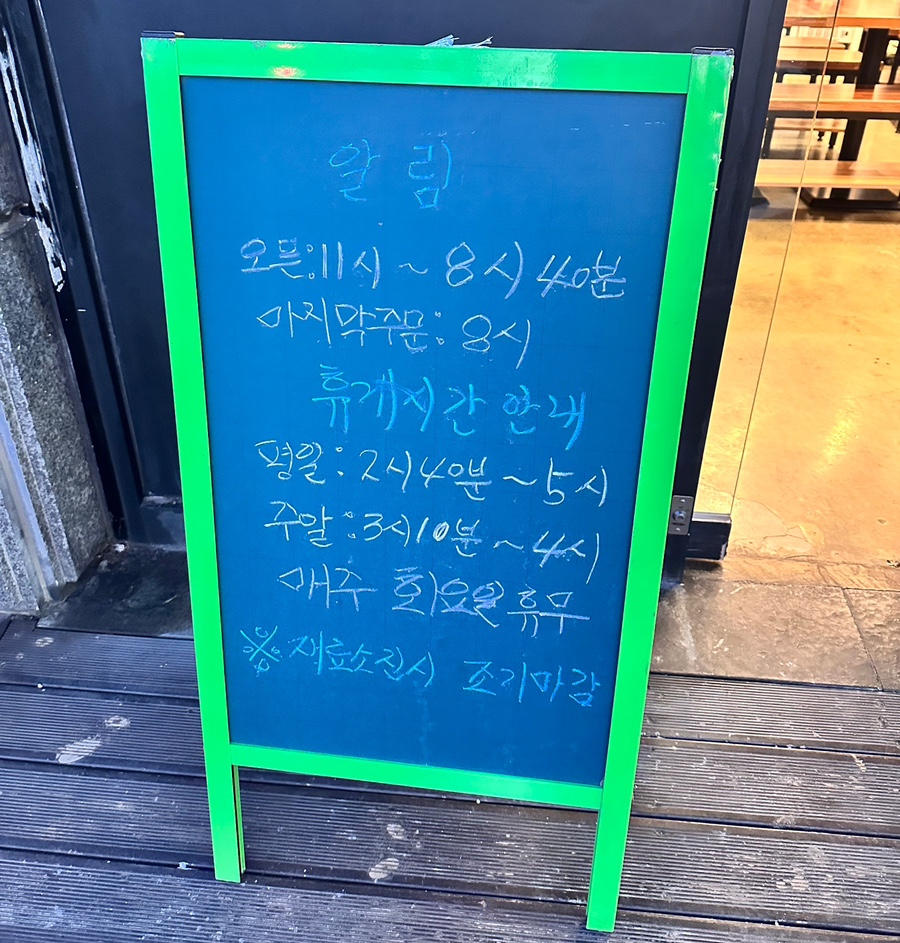 알림
오픈:11시~8시40분
마지막주문:8시
휴게시간 안내
평일:2시40분~5시
주말:3시10분~4시
매주 화요일 휴무
※ 재료소진시 조기마감